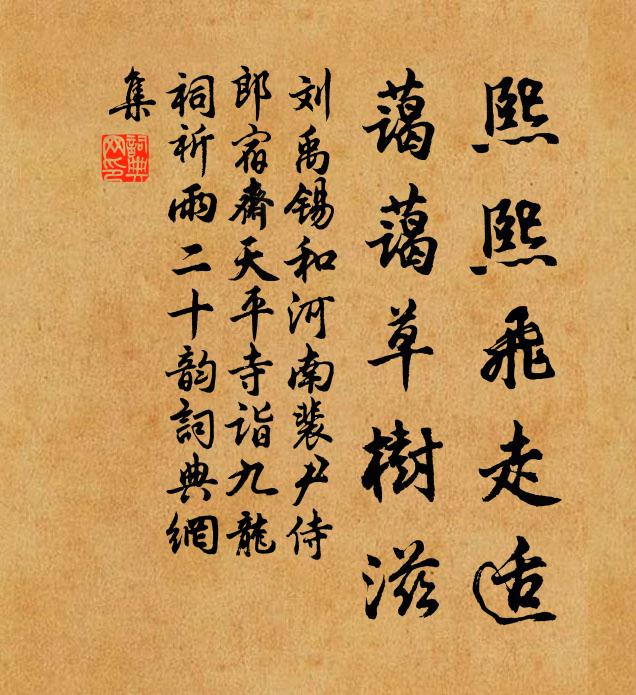 熙熙飛走适
藹藹草樹滋
刘禹锡和河南裴尹侍
郎宿齋天平寺诣九龍
祠祈雨二十韵詞典網
集
詞典
网印